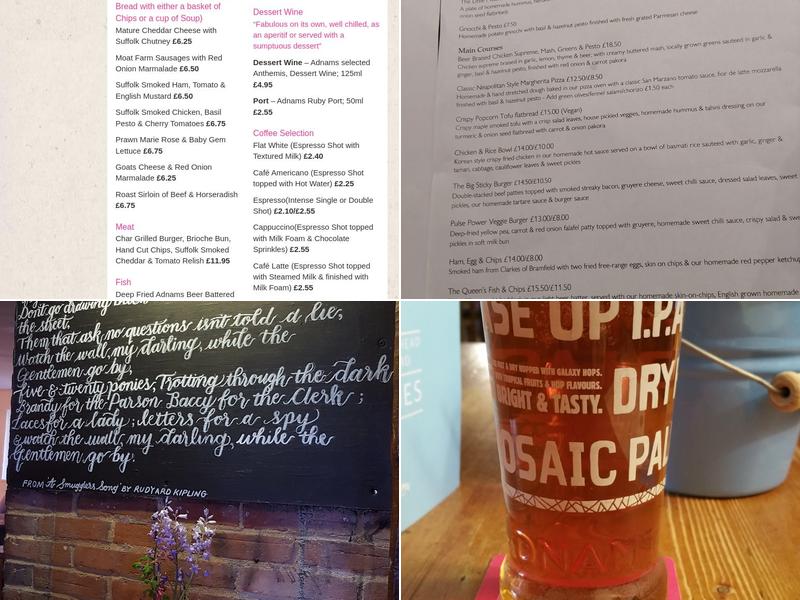 Bread with either a basket of
Chips or a cup of Soup)
Mature Cheddar Cheese with
Suffolk Chutney £6.25
Moat Farm Sausages with Red
Onion Marmalade £6.50
Suffolk Smoked Ham, Tomato &
English Mustard £6.50
Suffolk Smoked Chicken, Basil
Pesto & Cherry Tomatoes £6.75
Prawn Marie Rose & Baby Gem
Lettuce £6.75
Goats Cheese & Red Onion
Marmalade £6.25
Roast Sirloin of Beef & Horseradish
£6.75
Meat
Char Grilled Burger, Brioche Bun,
Hand Cut Chips, Suffolk Smoked
Cheddar & Tomato Relish £11.95
Fish
Deep Fried Adnams Beer Battered
Dessert Wine
"Fabulous on its own, well chilled, as
an aperitif or served with a
sumptuous dessert"
Dessert Wine – Adnams selected
Anthemis, Dessert Wine; 125ml
£4.95
Port – Adnams Ruby Port; 50ml
£2.55
Coffee Selection
Flat White (Espresso Shot with
Textured Milk) £2.40
Café Americano (Espresso Shot
topped with Hot Water) £2.25
Espresso(Intense Single or Double
Shot) £2.10/£2.55
Cappuccino(Espresso Shot topped
with Milk Foam & Chocolate
Sprinkles) £2.55
Café Latte (Espresso Shot topped
with Steamed Milk & finished with
Milk Foam) £2.55
A plate of homemade
onion seed flatbread
Gnocchi & Pesto £7.50
Homemade potato gnocchi with basil & hazelnut pesto finished with fresh grated Parmesan cheese
Main Courses
Beer Braised Chicken Supreme, Mash, Greens & Pesto £18.50
Chicken supreme braised in garlic, lemon, thyme & beer; with creamy buttered mash, locally grown greens sauteed in garlic &
ginger, basil & hazelnut pesto, finished with red onion & carrot pakora
Classic Neapolitan Style Margherita Pizza £12.50/£8.50
Homemade & hand stretched dough baked in our pizza oven with a classic San Marzano tomato sauce, fior de latte mozzarella
finished with basil & hazelnut pesto - Add green olives/fennel salami/chorizo £1.50 each
Crispy Popcorn Tofu flatbread £15.00 (Vegan)
Crispy maple smoked tofu with a crisp salad leaves, house pickled veggies, homemade hummus & tahini dressing on our
turmeric & onion seed flatbread with carrot & onion pakora
Chicken & Rice Bowl £14.00/£10.00
Korean style crispy fried chicken in our homemade hot sauce served on a bowl of basmati rice sauteed with garlic, ginger &
tamari, cabbage, cauliflower leaves & sweet pickles
The Big Sticky Burger £14.50/£10.50
Double-stacked beef patties topped with smoked streaky bacon, gruyere cheese, sweet chilli sauce, dressed salad leaves, sweet
pickles, our homemade tartare sauce & burger sauce
Pulse Power Veggie Burger £13.00/£8.00
Deep-fried yellow pea, carrot & red onion falafel patty topped with gruyere, homemade sweet chilli sauce, crispy salad & sw
pickles in soft milk bun
Ham, Egg & Chips £14.00/£8.00
Smoked ham from Clarkes of Bramfield with two fried free-range eggs, skin on chips & our homemade red pepper ketchup
The Queen's Fish & Chips £15.50/£11.50
light beer batter, served with our homemade skin-on-chips, English grown homemade
Don't go drawing back
the street,
Them that ask no questions isn't told a lie,
Watch the wall, my darling, while the
Gentlemen go by,
Five & twenty ponies, Trotting through the dark
Brandy for the Parson Baccy for the Clerk ;
Laces for a lady ; letters for a spy
& watch the wall, my darling, while the
Gentlemen go by.
FROM 'A Smugglers Song' BY RUDYARD KIPLING
EAD
ES
SE UP I.P.A
DRY HOPPED WITH GALAXY HOPS.
TROPICAL FRUITS & HOP FLAVOURS.
BRIGHT & TASTY. DRY
OSAIC PAL
DNAM